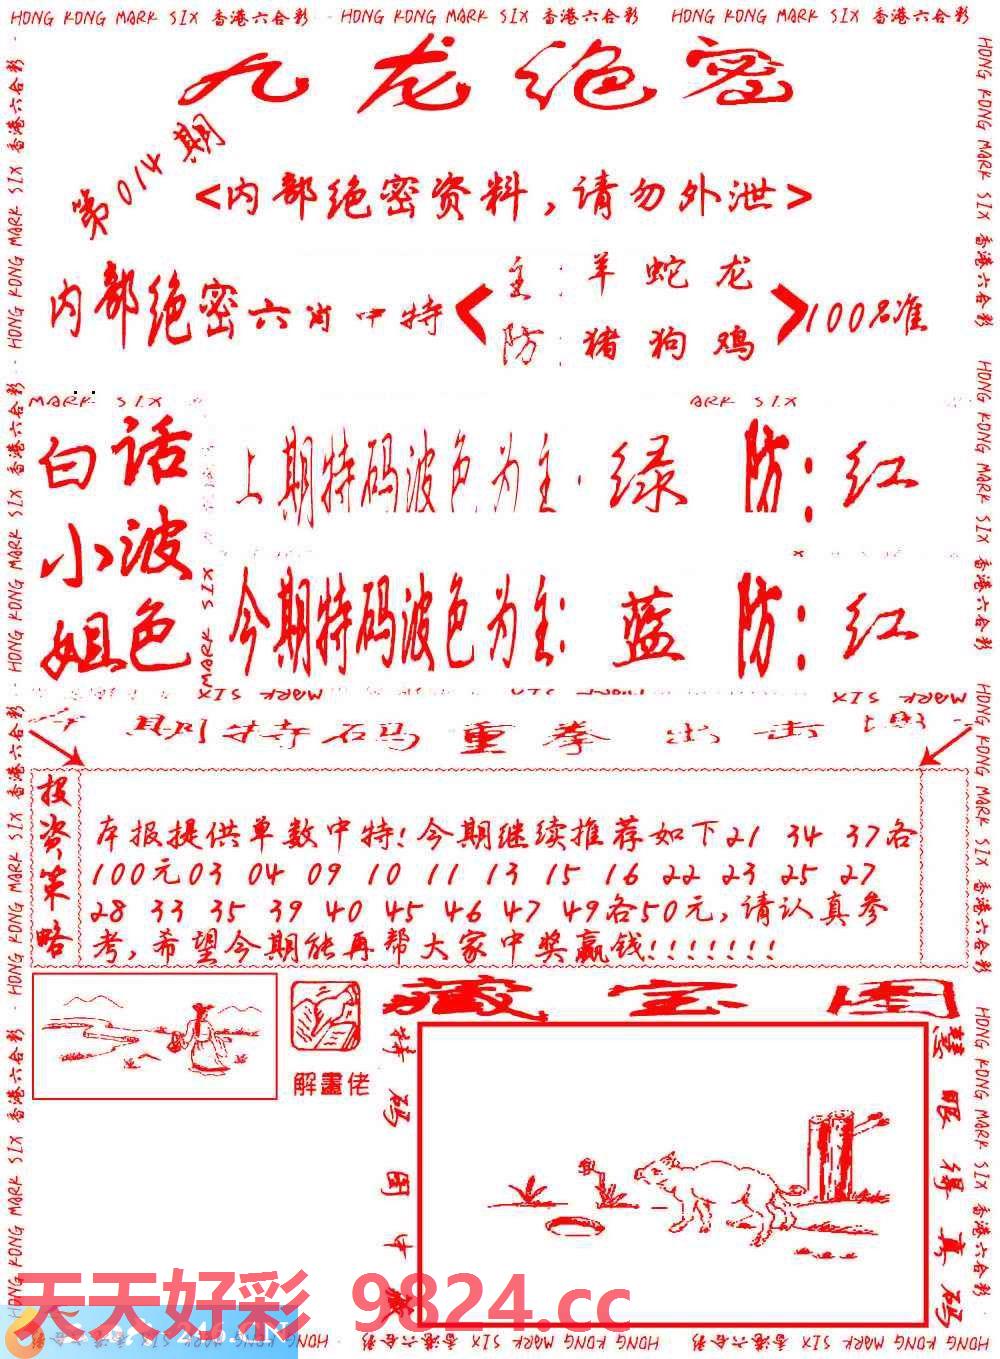 HONG KONG MARK SIX 香港六合彩 HONG KONG MARK SIX 香港六合彩 HONG KONG MARK SIX 香港六合彩
九龙绝密
第014期
<内部绝密资料，请勿外泄>
内部绝密六肖中特
主:羊 蛇 龙
防:猪 狗 鸡
100%准
MARK SIX
ARK SIX
白小姐
话波色
上期特码波色为主:绿 防:红
今期特码波色为主:蓝 防:红
MARK SIX
期特码重拳出击
投资策略
本报提供单数中特!今期继续推荐如下21 34 37各
100元03 04 09 10 11 13 15 16 22 23 25 27
28 33 35 39 40 45 46 47 49各50元,请认真参
考,希望今期能再帮大家中奖赢钱!!!!!!!
藏宝图
解畫佬
特码图中
慧眼得真码
天天好彩 9824.cc
HONG KONG MARK SIX 香港六合彩